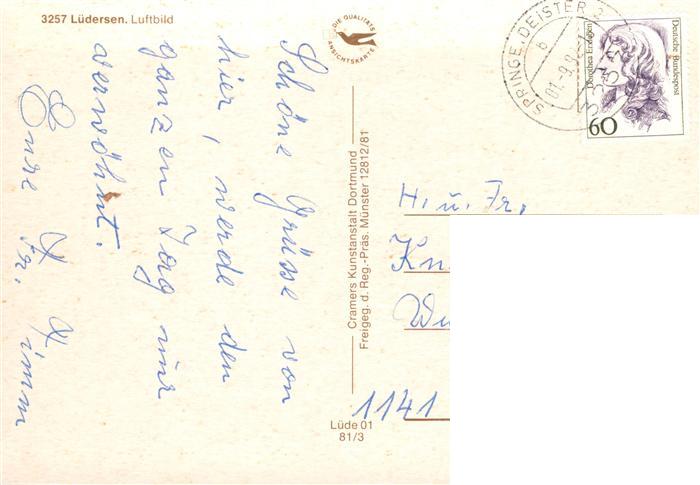 3257 Lüdersen. Luftbild
DIE QUALITÄTS
ANSICHTSKARTE
Schöne Grüsse von
hier, werde den
ganzen Tag nur
verwöhnt.
Eure Fr. Timm
Cramers Kunstanstalt Dortmund
Freigeg. d. Reg.-Präs. Münster 12812/81
Lüde 01
81/3
SPRINGE, DEISTER
b
3257
Deutsche Bundespost
Dorothea Erxleben
60
H. u. Fr.
Kn
Wu
1141